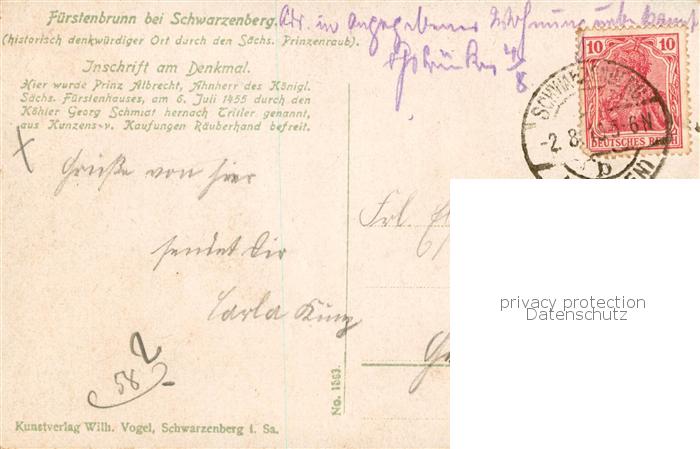 Fürstenbrunn bei Schwarzenberg.
(historisch denkwürdiger Ort durch den Sächs. Prinzenraub).
Inschrift am Denkmal.
Hier wurde Prinz Albrecht, Ahnherr des Königl.
Sächs. Fürstenhauses, am 6. Juli 1455 durch den
Köhler Georg Schmidt hernach Triller genannt,
aus Kunzens v. Kaufungen Räuberhand befreit.
Adr. in angegebener Wohnung unbekannt
4/8
10 10
DEUTSCHES REICH
SCHWARZENBERG
-2.8. 5-6N
b
Grüße von hier
sendet Dir
Carla Künz
Frl.
58
2
No. 1863.
Kunstverlag Wilh. Vogel, Schwarzenberg i. Sa.
privacy protection
Datenschutz